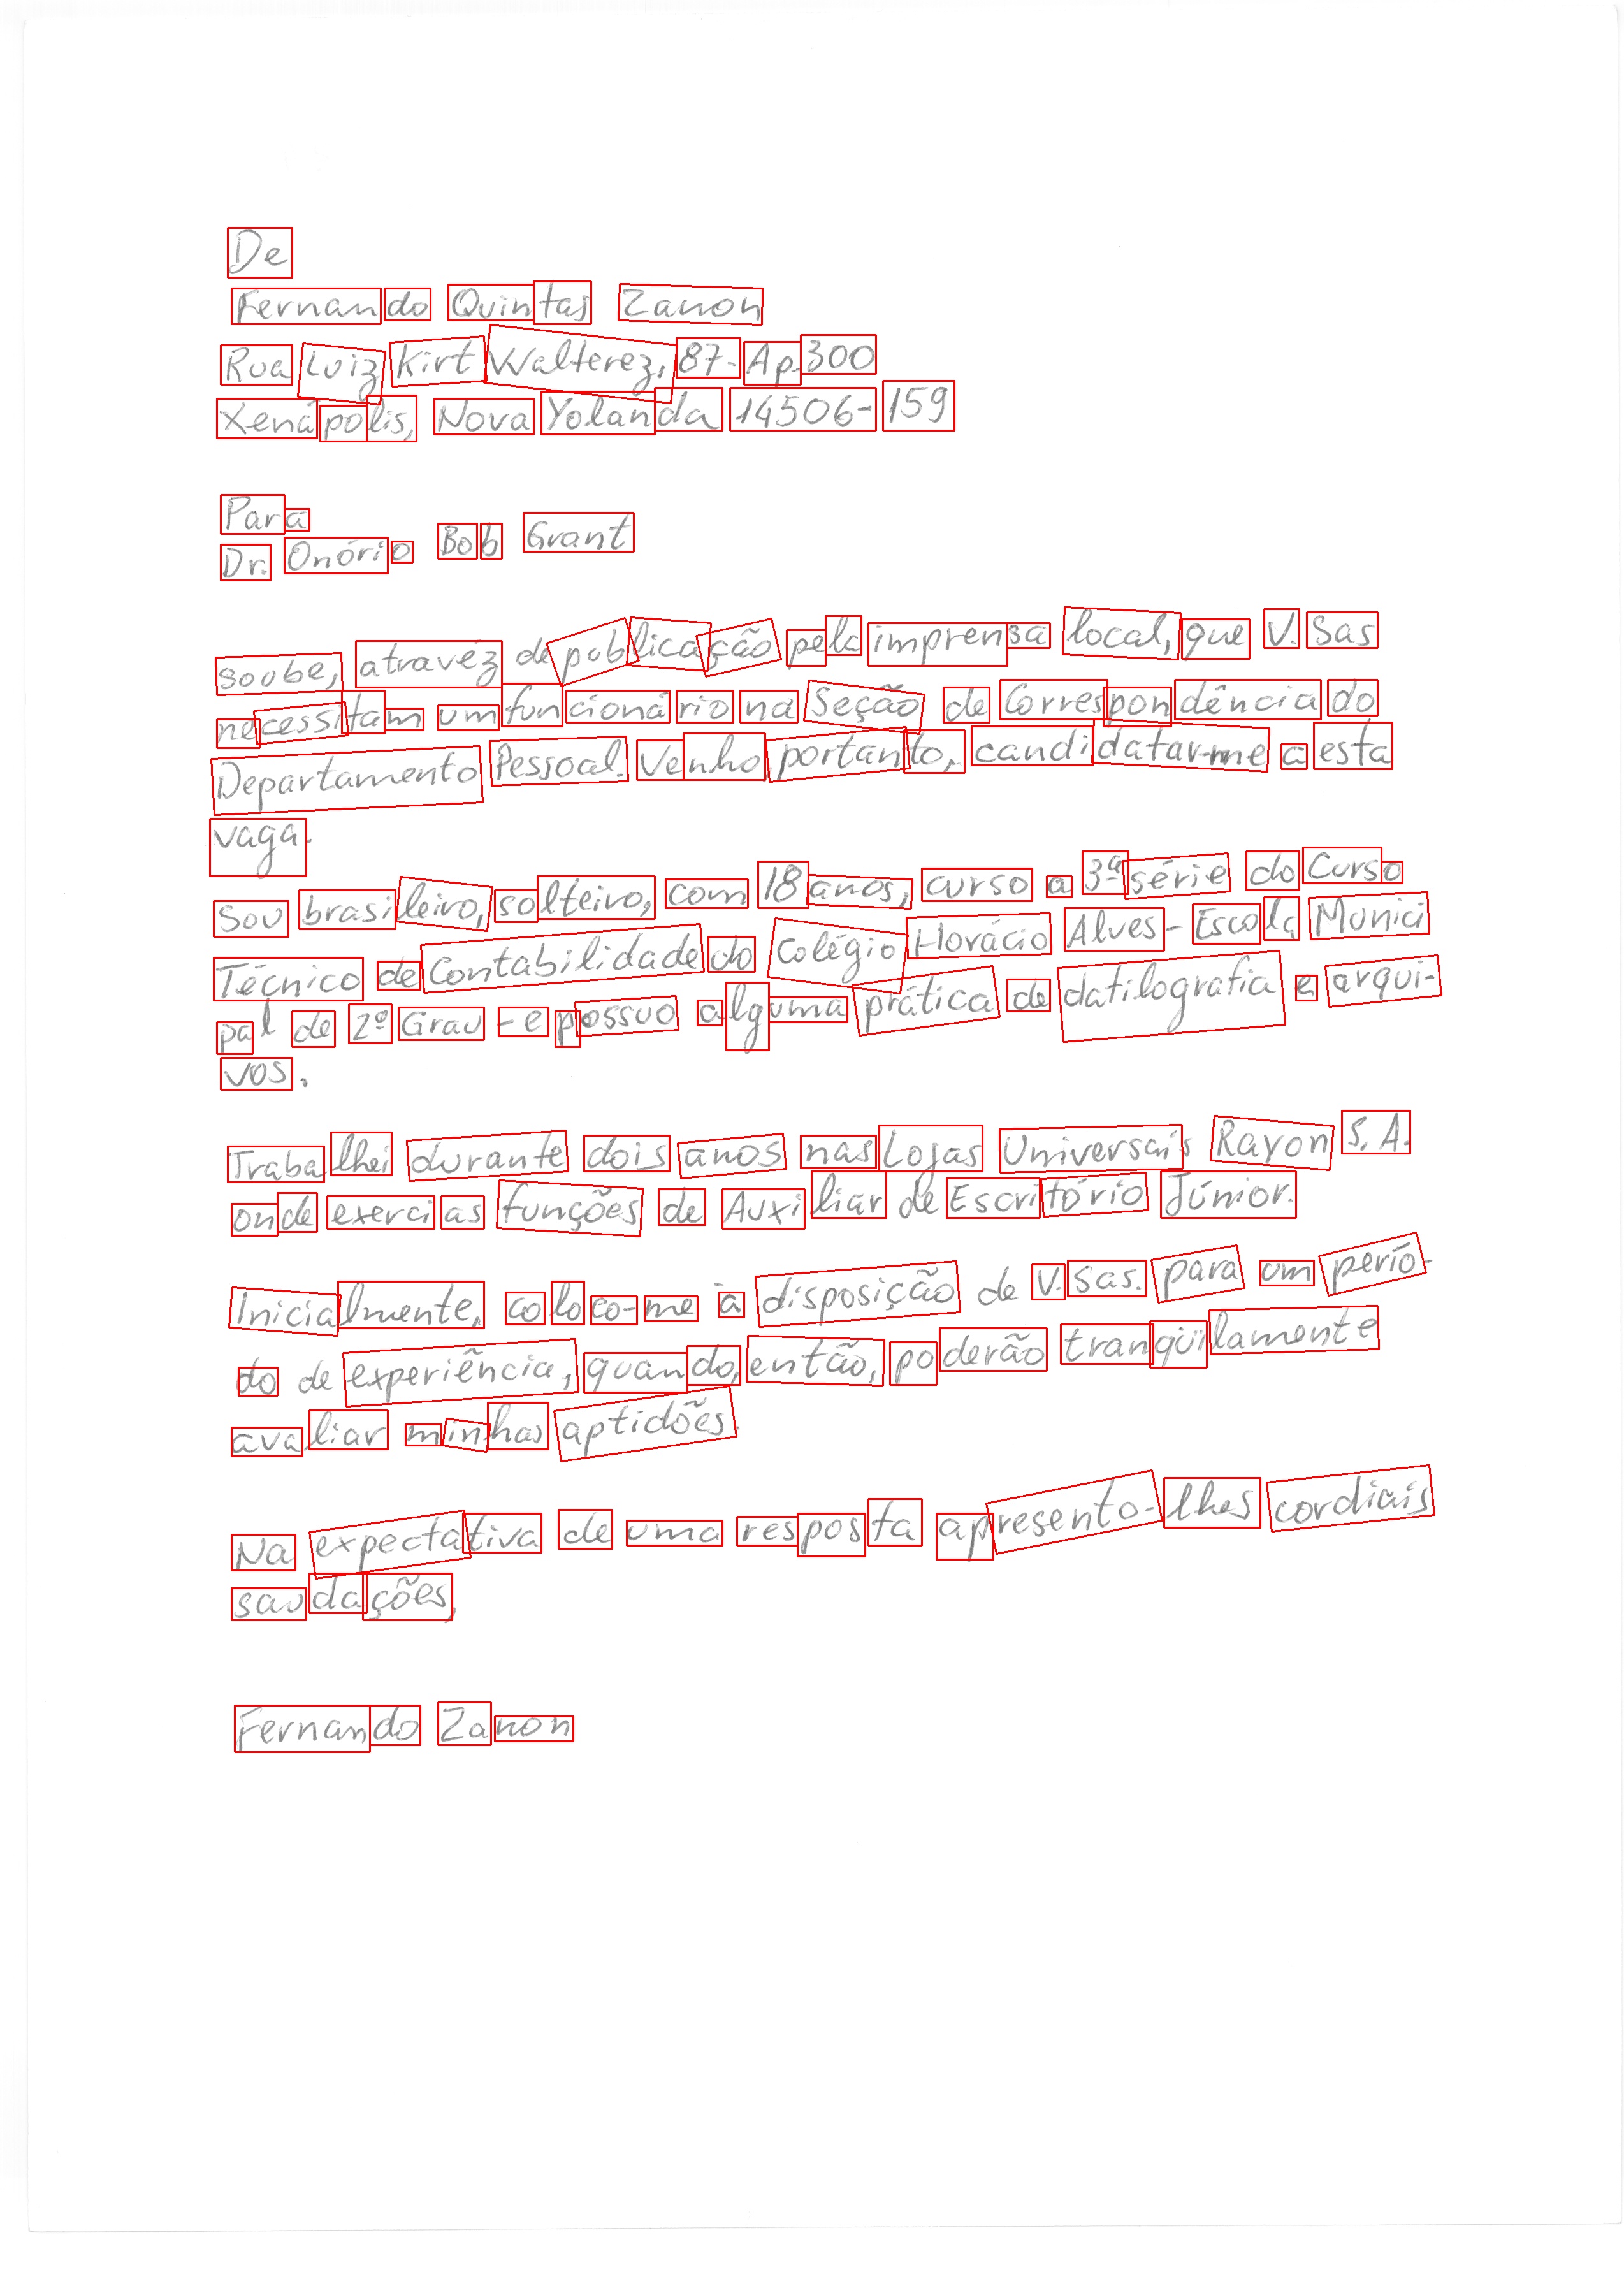 De
Fernando Quintas Zanon
Rua Luiz Kirt Walterez, 87- Ap. 300
Xenápolis, Nova Yolanda 14506-159
Para
Dr. Onório Bob Grant
Soube, atravez de publicação pela imprensa local, que V. Sas
necessitam um funcionário na Seção de Correspondência do
Departamento Pessoal. Venho portanto, candidatar-me a esta
vaga.
Sou brasileiro, solteiro, com 18 anos, curso a 3ª série do Curso
Técnico de Contabilidade do Colégio Horácio Alves - Escola Munici
pal de 2º Grau - e possuo alguma prática de datilografia e arqui-
vos.
Trabalhei durante dois anos nas Lojas Universais Rayon S. A.
onde exerci as funções de Auxiliar de Escritório Júnior.
Inicialmente, coloco-me à disposição de V. Sas. para um perío-
do de experiência, quando, então, poderão tranqüilamente
avaliar minhas aptidões.
Na expectativa de uma resposta apresento-lhes cordiais
saudações,
Fernando Zanon